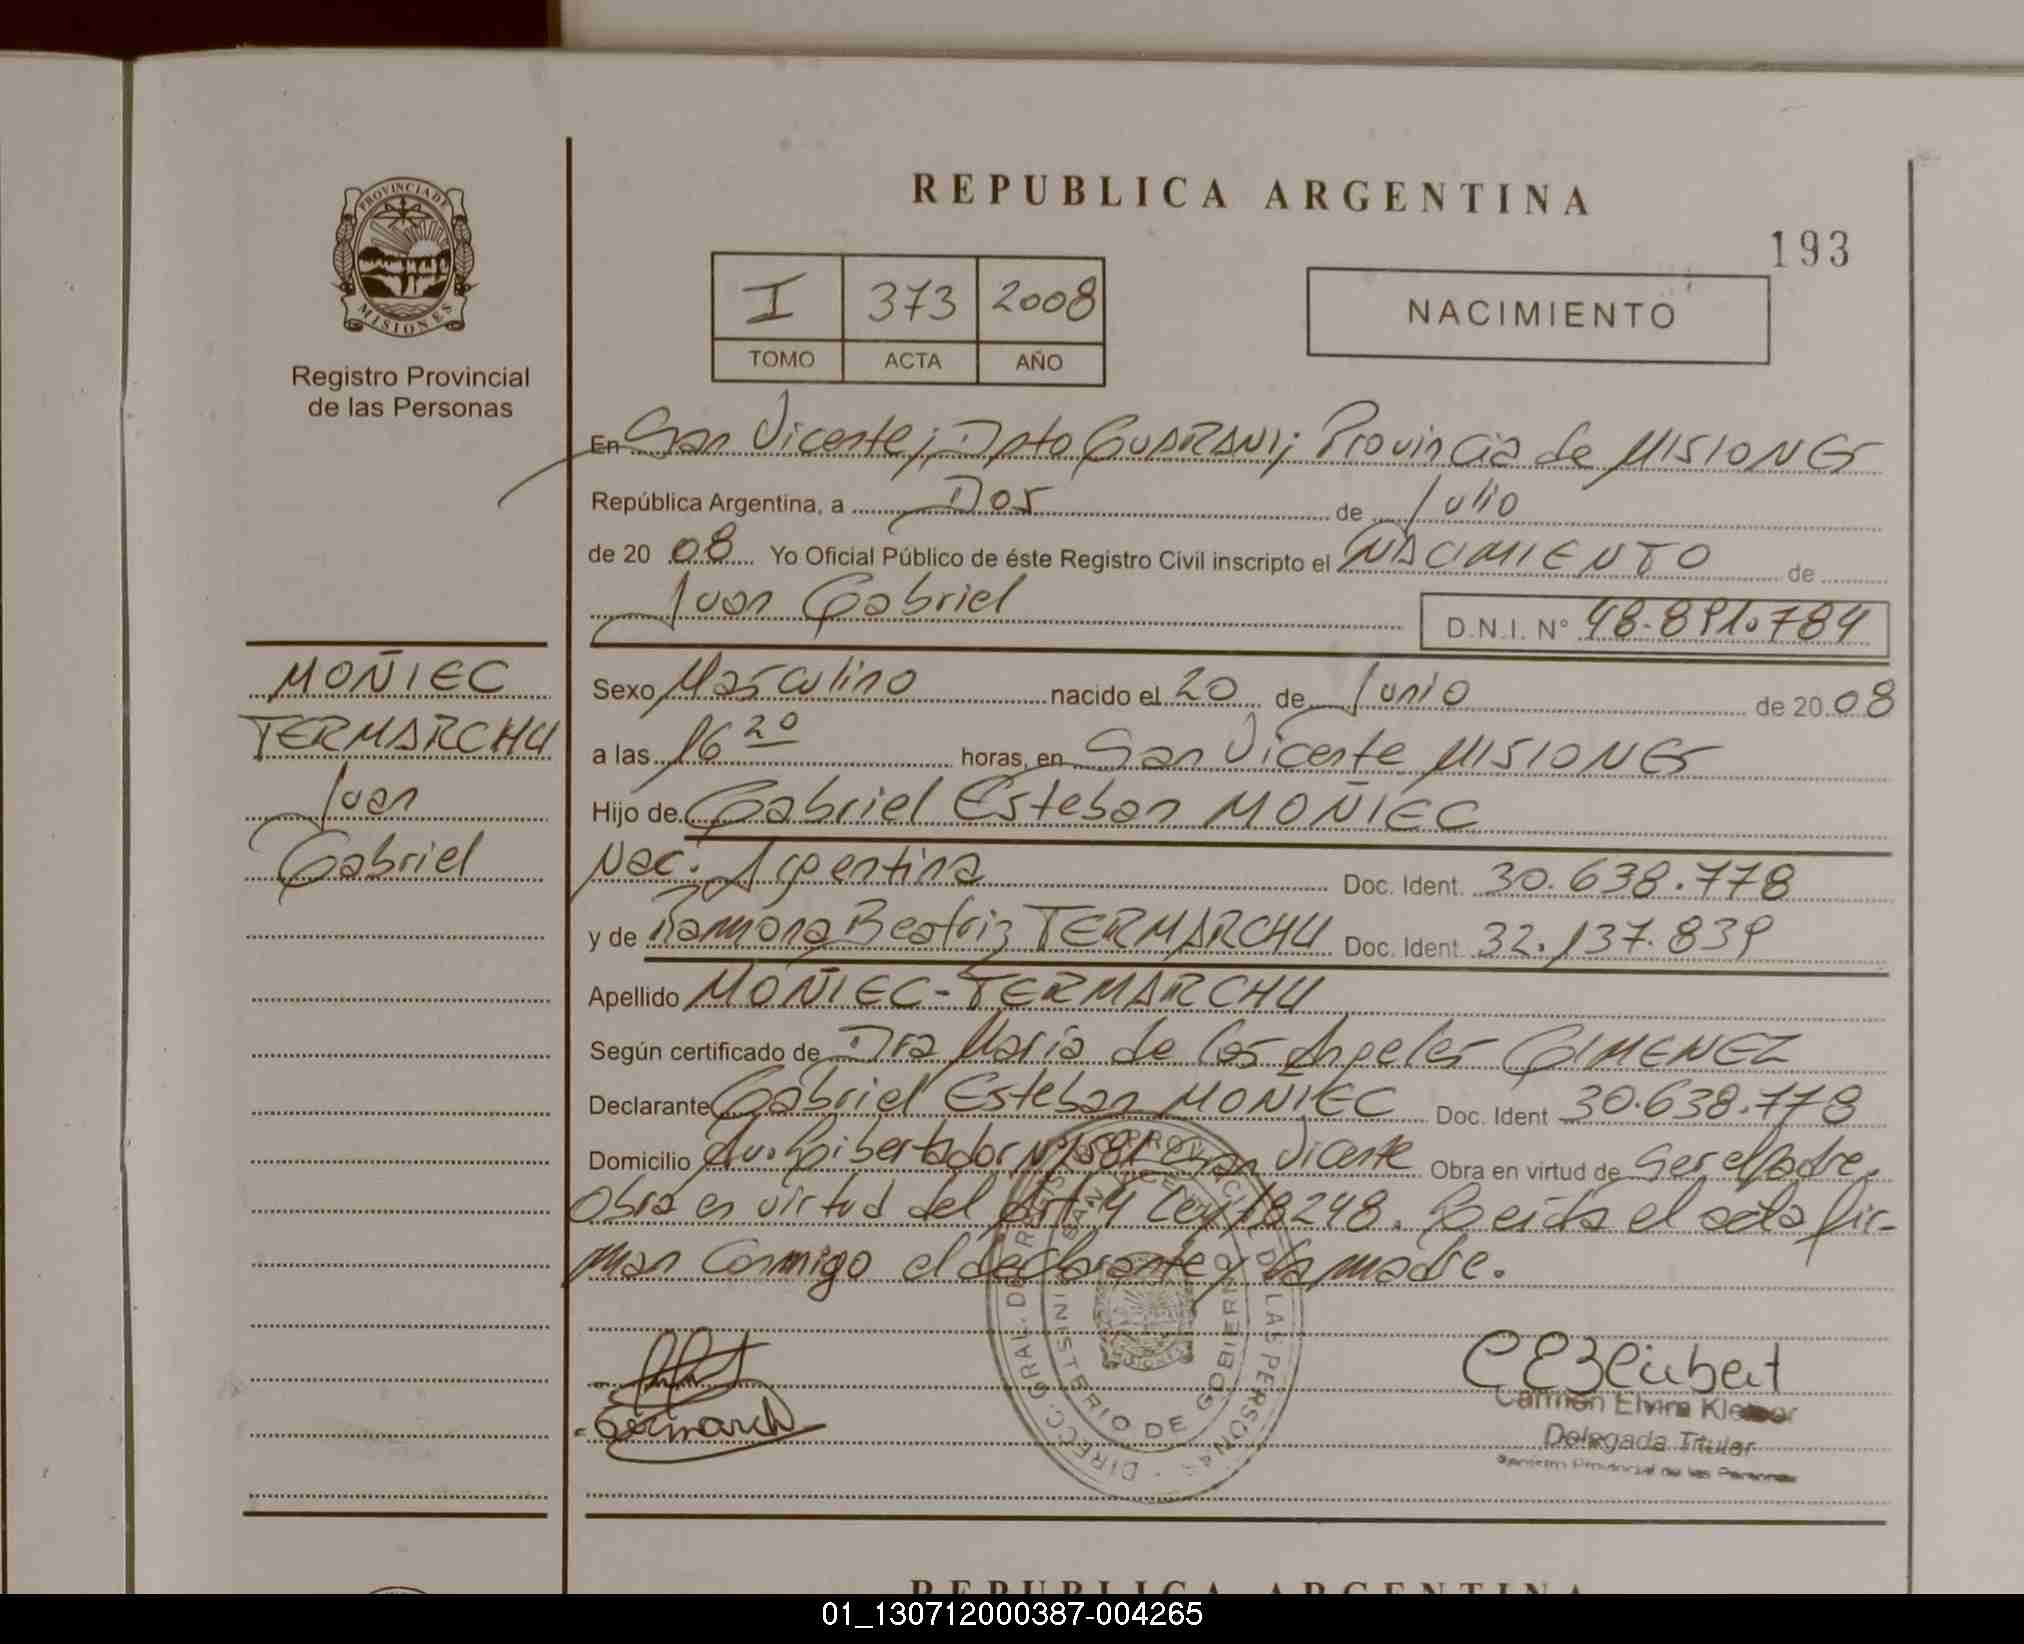 REPUBLICA ARGENTINA
193
PROVINCIA DE
MISIONES
Registro Provincial
de las Personas
I 373 2008
TOMO ACTA AÑO
NACIMIENTO
En San Vicente; Dpto GUARANI; Provincia de MISIONES
República Argentina, a Dos de Julio
de 2008 Yo Oficial Público de éste Registro Civil inscripto el NACIMIENTO de
Juan Gabriel
D.N.I. Nº 48.891.784
MOÑIEC
TERMARCHU
Juan
Gabriel
Sexo Masculino nacido el 20 de Junio de 2008
a las 16 20 horas, en San Vicente MISIONES
Hijo de Gabriel Esteban MOÑIEC
Nac. Argentina Doc. Ident. 30.638.778
y de Ramona Beatriz TERMARCHU Doc. Ident. 32.137.839
Apellido MOÑIEC-TERMARCHU
Según certificado de Dra María de los Angeles GIMENEZ
Declarante Gabriel Esteban MOÑIEC Doc. Ident 30.638.778
Domicilio Av. Libertador San Vicente Obra en virtud de ser el padre.
Obra en virtud del Art 4 Ley 18248. Leída el acta fir-
man conmigo el declarante y la madre.
DIRECC. GRAL. DE REGISTRO PROVINCIAL DE LAS PERSONAS
MINISTERIO DE GOBIERNO
SAN VICENTE
Carmen Elvira
Delegada Titular
Registro Provincial de las Personas
REPUBLICA ARGENTINA
01_130712000387-004265